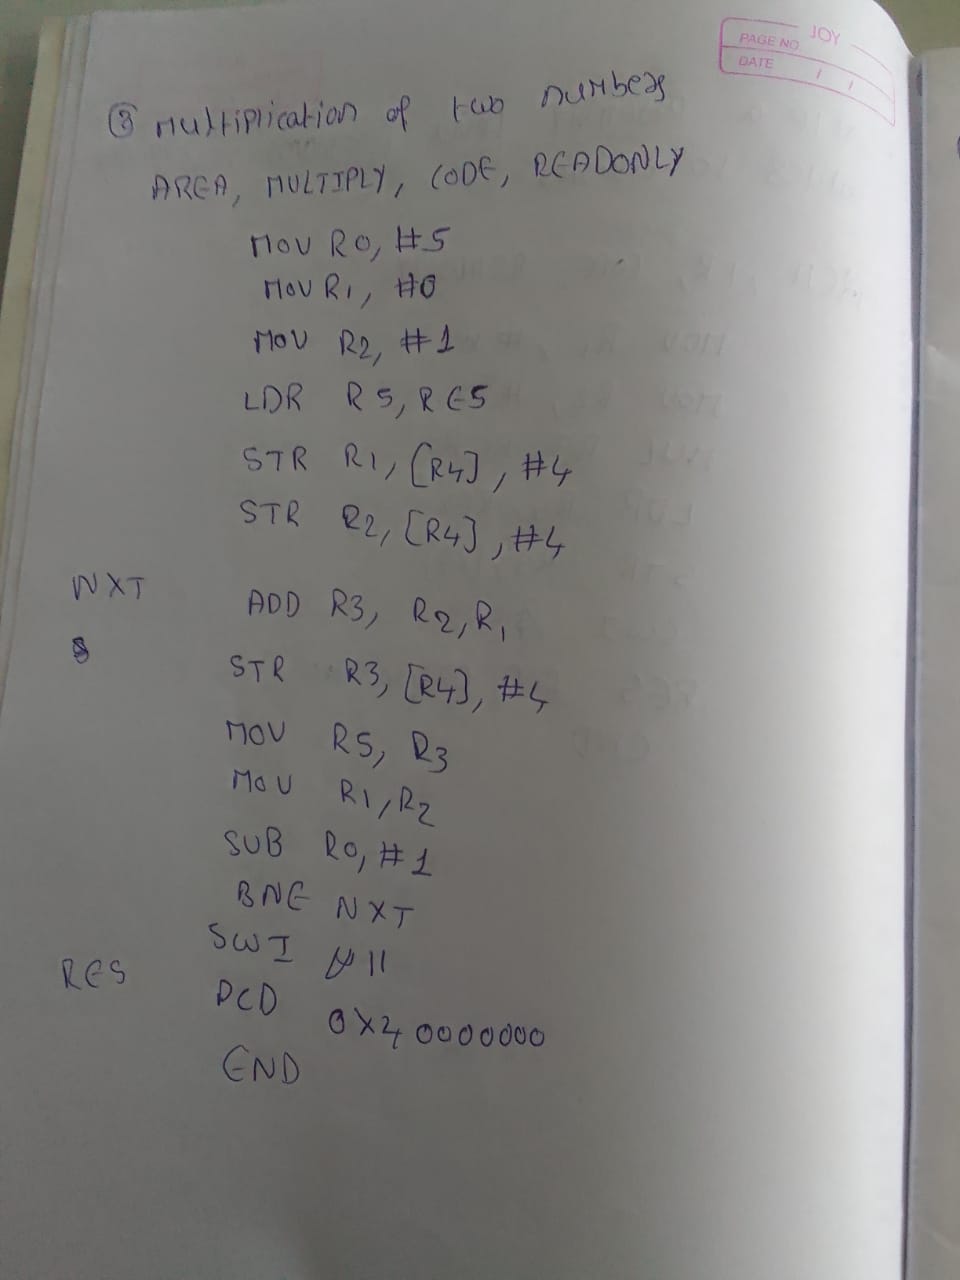 JOY
PAGE NO
DATE / /
③ Multiplication of two numbers
AREA, MULTIPLY, CODE, READONLY
MOV R0, #5
MOV R1, #0
MOV R2, #1
LDR R5, RES
STR R1, [R4], #4
STR R2, [R4], #4
NXT ADD R3, R2, R1
STR R3, [R4], #4
MOV R5, R3
MOV R1, R2
SUB R0, #1
BNE NXT
SWI &11
RES DCD 0X40000000
END